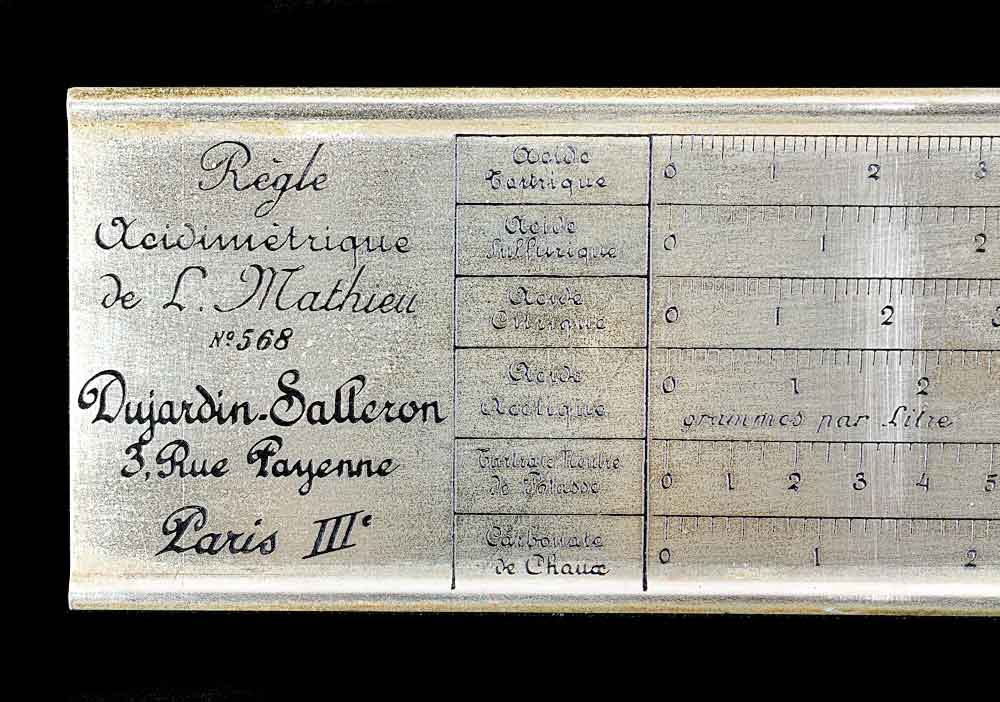 Règle
Acidimétrique
de L. Mathieu
Nº 568
Dujardin-Salleron
3, Rue Payenne
Paris IIIe
Acide
Tartrique
0 1 2 3
Acide
Sulfurique
0 1 2
Acide
Citrique
0 1 2
Acide
Acétique
0 1 2
grammes par Litre
Tartrate Neutre
de Potasse
0 1 2 3 4 5
Carbonate
de Chaux
0 1 2